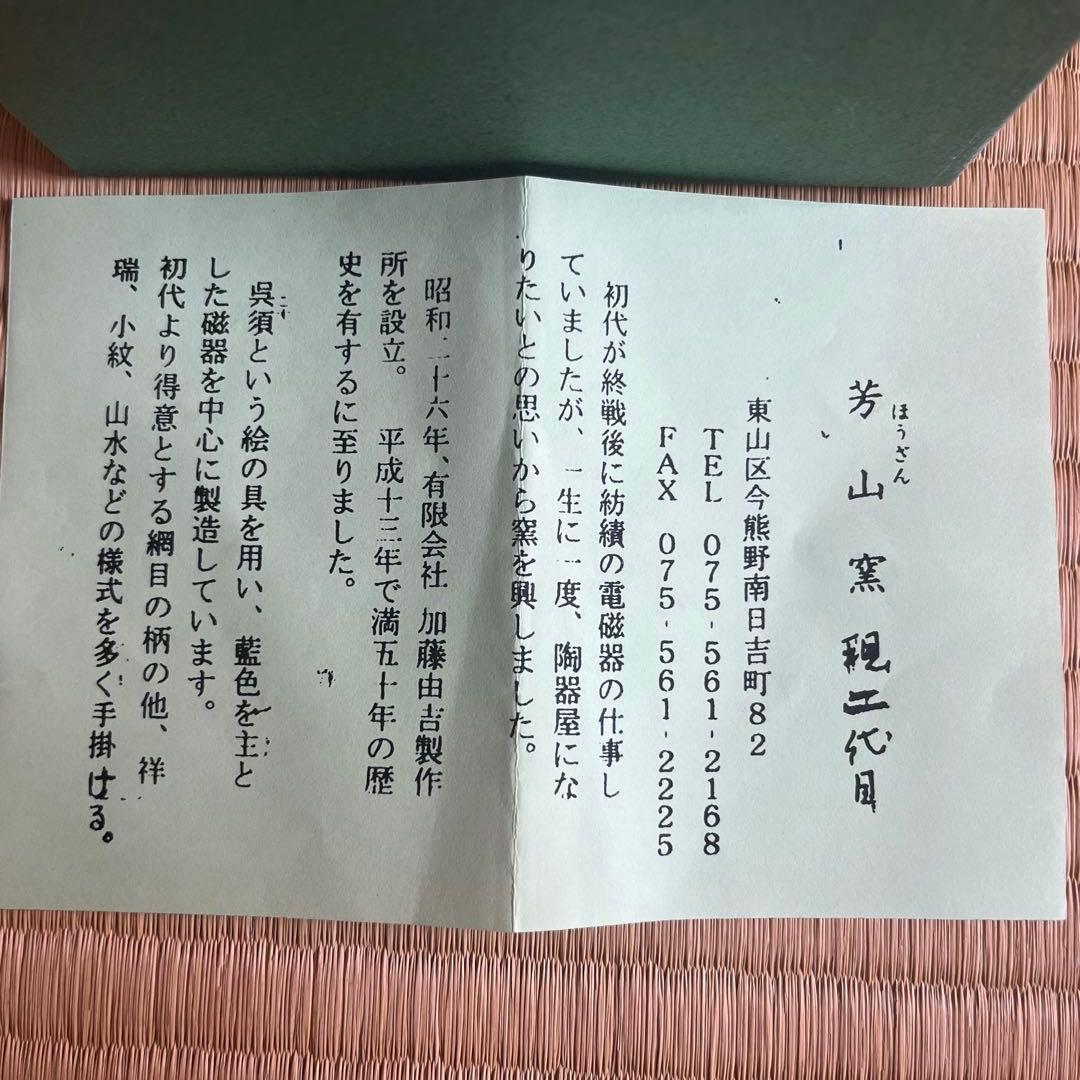 ほうざん
芳山窯 現二代目
東山区今熊野南日吉町82
TEL 075-561-2168
FAX 075-561-2225
初代が終戦後に紡績の電磁器の仕事し
ていましたが、一生に一度、陶器屋にな
りたいとの思いから窯を興しました。
昭和二十六年、有限会社 加藤由吉製作
所を設立。 平成十三年で満五十年の歴
史を有するに至りました。
呉須という絵の具を用い、藍色を主と
した磁器を中心に製造しています。
初代より得意とする網目の柄の他、祥
瑞、小紋、山水などの様式を多く手掛ける。